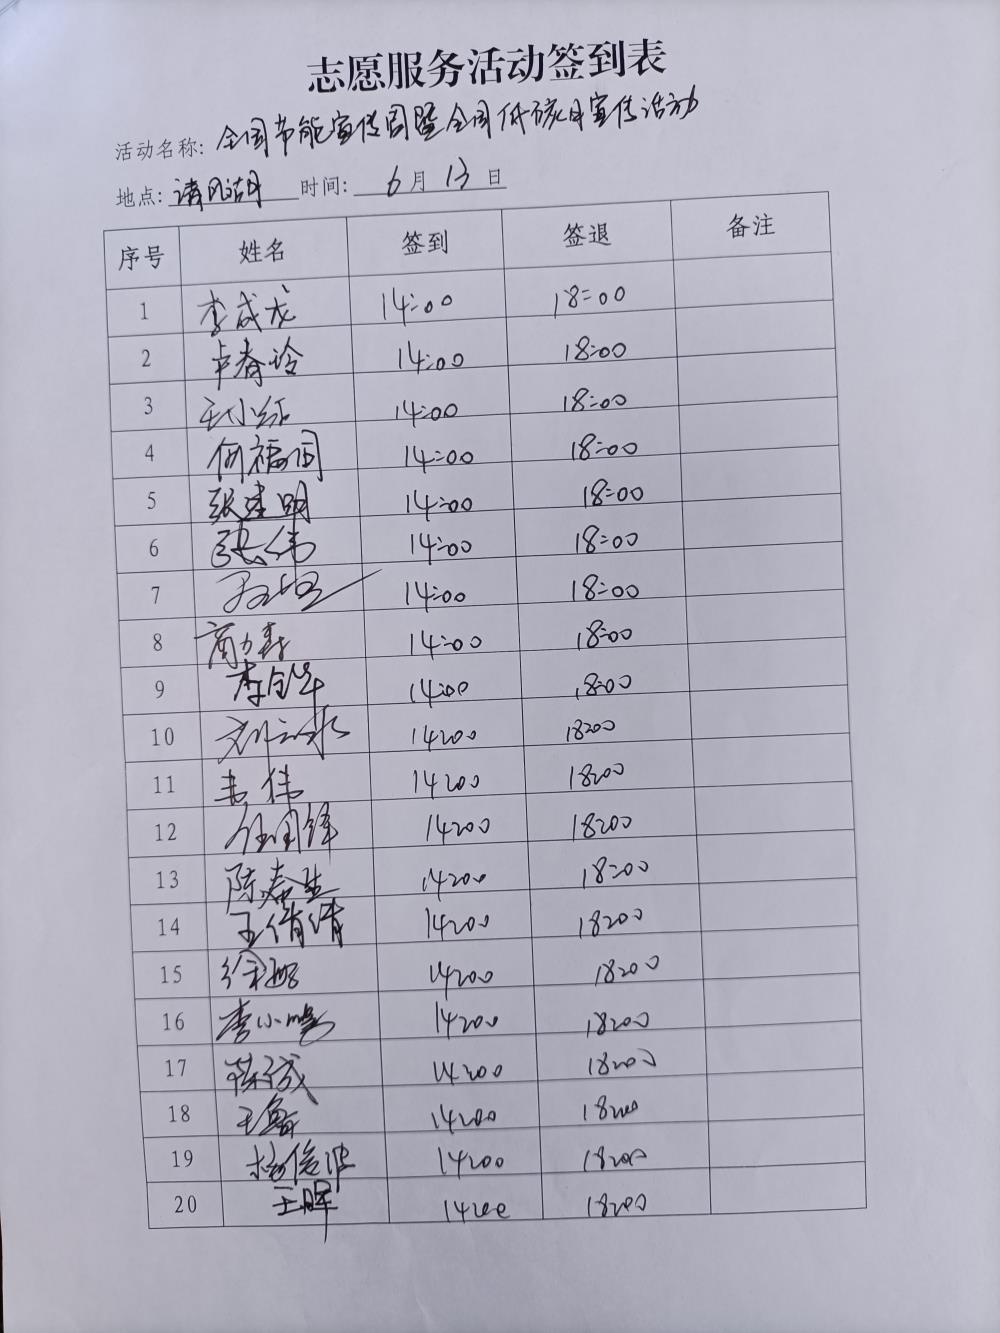 志愿服务活动签到表
活动名称: 全国节能宣传周暨全国低碳日宣传活动
地点: 清风湖 时间: 6月13日
序号 姓名 签到 签退 备注
1 李成龙 14:00 18:00
2 卢春玲 14:00 18:00
3 王小红 14:00 18:00
4 何福国 14:00 18:00
5 张建明 14:00 18:00
6 张伟 14:00 18:00
7 14:00 18:00
8 商力寿 14:00 18:00
9 李金华 14:00 18:00
10 14:00 18:00
11 韦伟 14:00 18:00
12 任国锋 14:00 18:00
13 陈嘉生 14:00 18:00
14 王倩倩 14:00 18:00
15 14:00 18:00
16 李小鹏 14:00 18:00
17 14:00 18:00
18 王 14:00 18:00
19 杨俊波 14:00 18:00
20 王晖 14:00 18:00